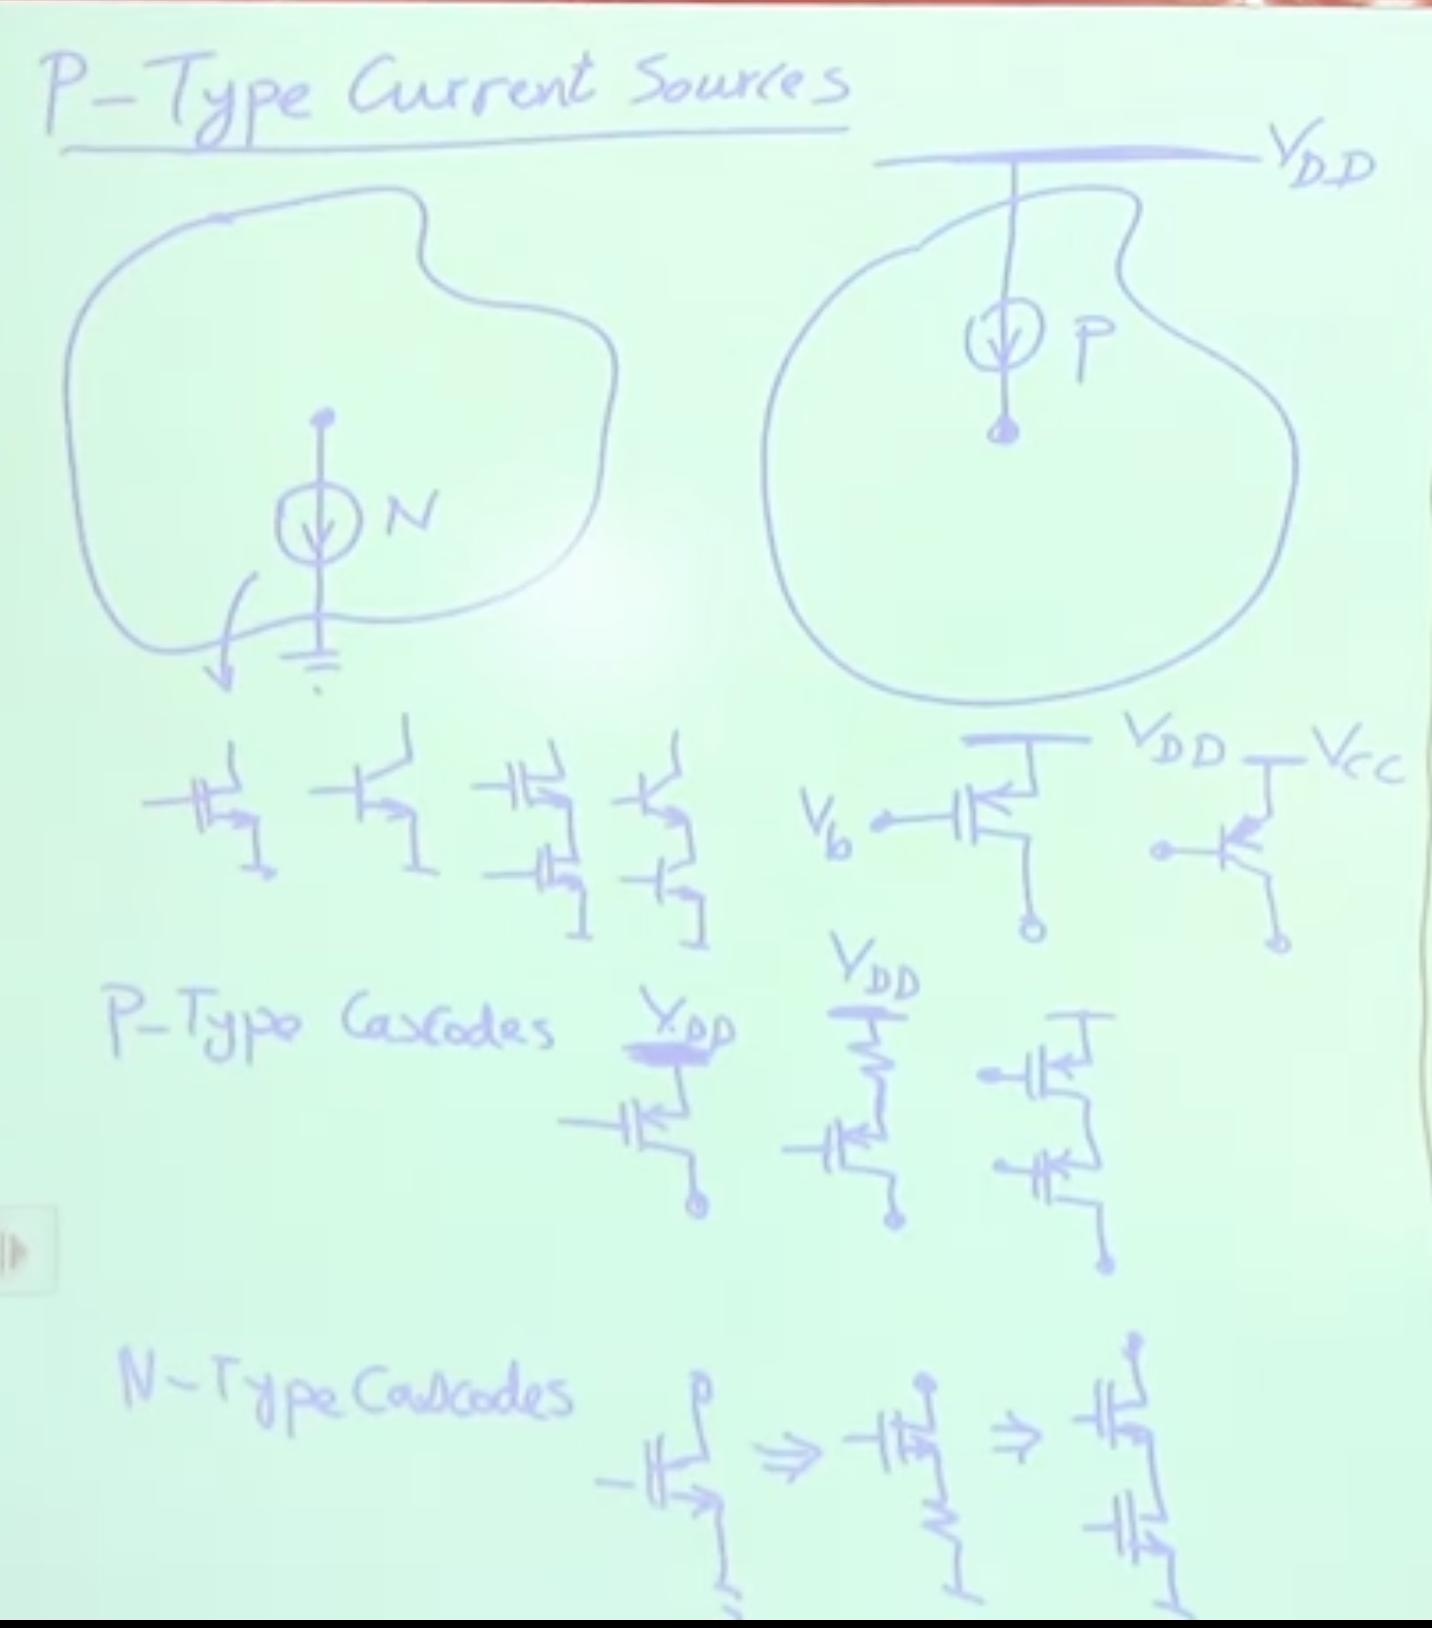 P-Type Current Sources
VDD
P
N
VDD
VCC
Vb
VDD
P-Type Cascodes
VDD
N-Type Cascodes